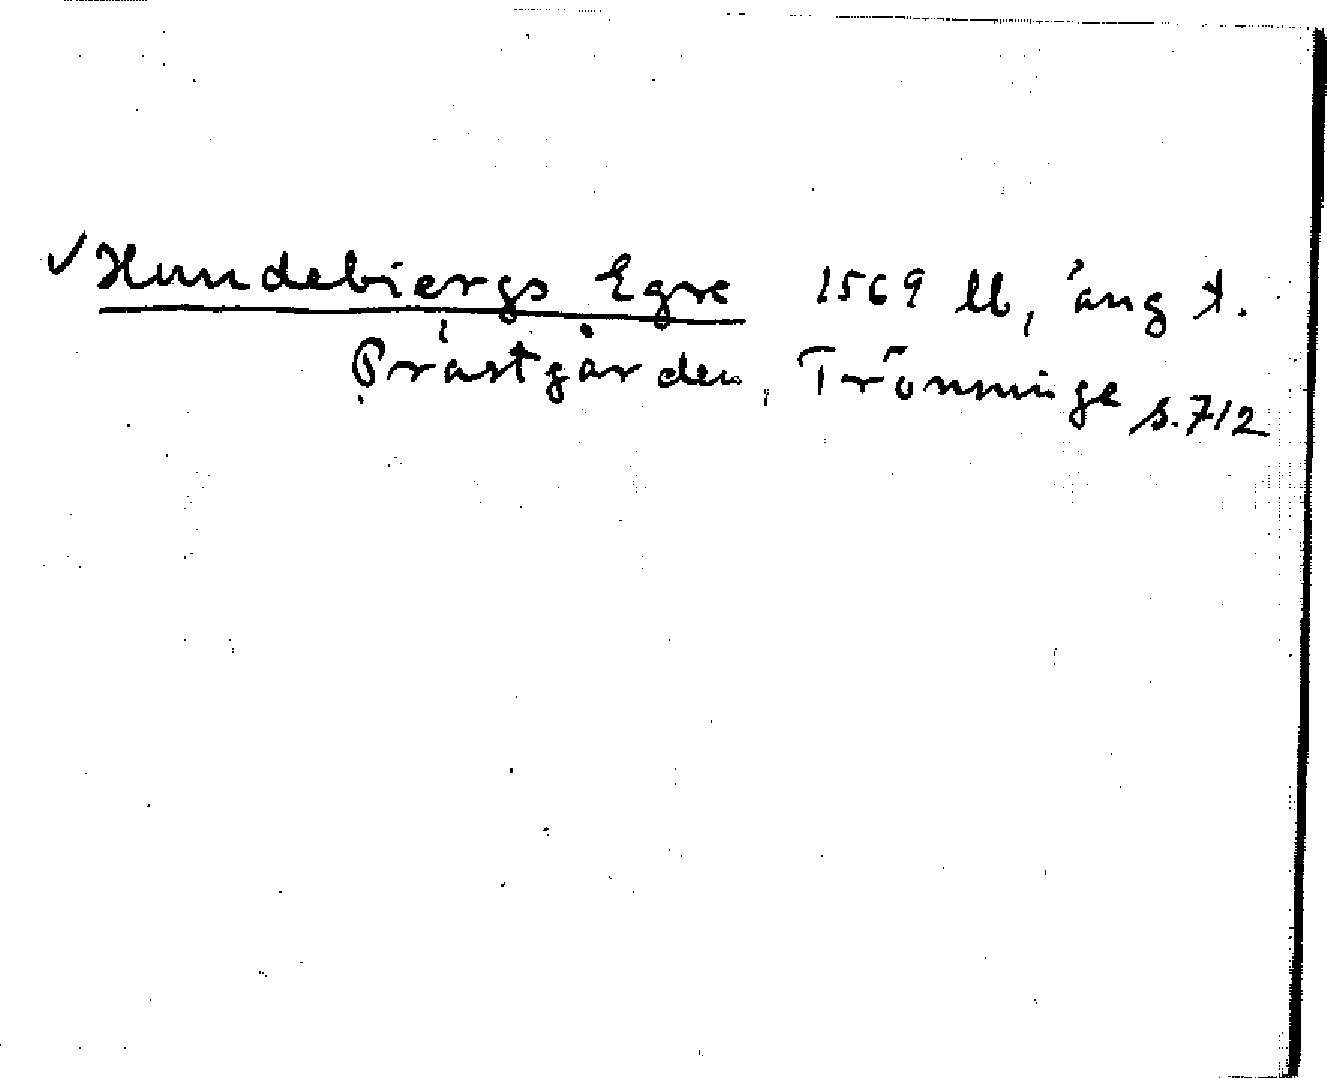 ✓ Hundebiergs Egre 1569 lb, äng t.
Prästgården, Trönninge s. 712